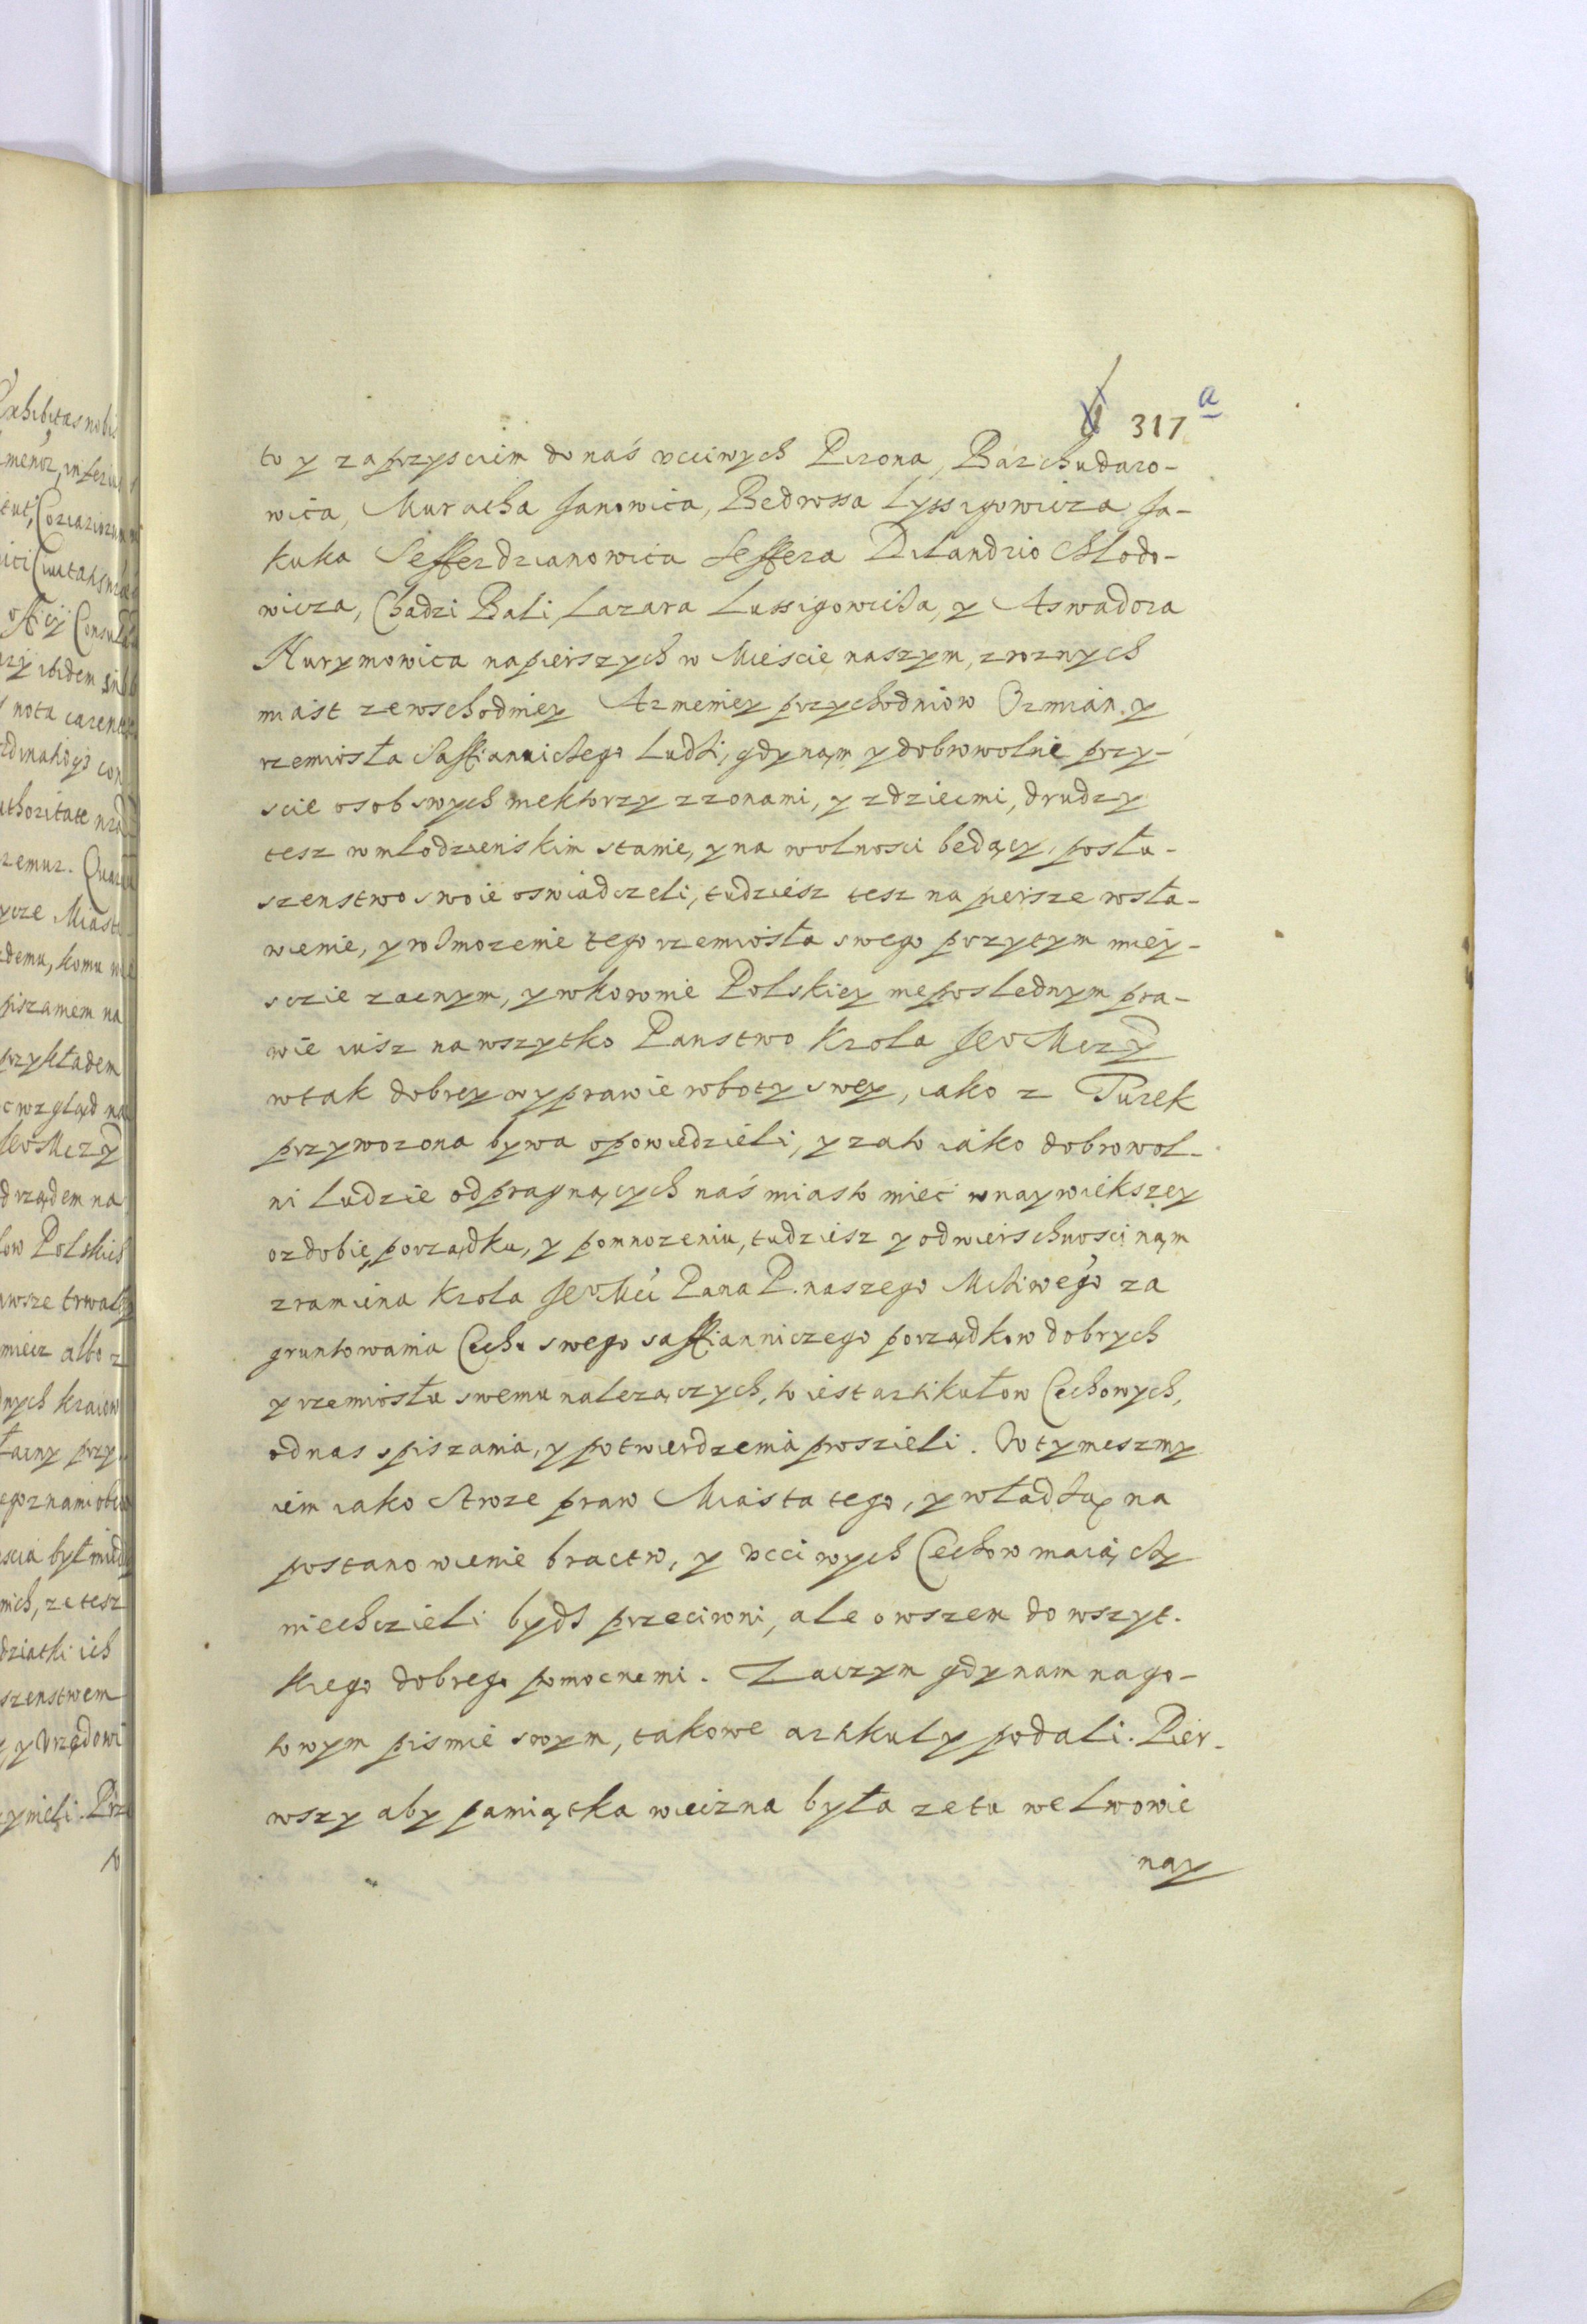 317 a
to y za przysciem do nas vcciwych Pirona, Barchudaro-
wica, Muracha Janowica, Bedrossa Lyssigowicza Ja-
kuka Sefferdzianowica Seffera Dilandzio Chlodo-
wicza, Chadzi Bali, Lazara Lussigowicza, y Aswadora
Kurymowica napierszych w Miescie naszym, z roznych
miast ze wschodniey Armeniey przychodniow Ormian. y
rzemiosła Saffianniczego Ludzi, gdy nąm y dobrowolnie przy-
scie osob swych niektorzy z zonami, y z dziecmi, drudzy
tesz w mlodzienskim stanie, y na wolnosci bedący, posłu-
szenstwo swoie oswiadczeli, tudziesz tesz na piersze wsła-
wienie, y rozmozenie tego rzemiosła swego przy tym miey-
sczie zacnym, y w koronie Polskiey nieposlednym pra-
wie iusz na wszytko Panstwo Krola Jeo Mczy
w tak dobrey wyprawie roboty swey, iako z Turek
przywozona bywa opowiedzieli, y za to iako dobrowol-
ni ludzie od pragnących nas miasto miec w naywiekszey
ozdobie, porządku, y pomnozeniu, tudziesz y od wierschnosci nąm
z ramiena Krola Jeo Mci Pana P. naszego Mciwego za
gruntowania Cechu swego saffianniczego porządkow dobrych
y rzemiosłu swemu nalezączych, to iest artikułow Cechowych,
od nas spiszania, y potwierdzenia proszieli. O o tymeszmy
iem iako Stroze praw Miasta tego, y władzą na
postanowienie bractw, y vcciwych Cechow maiączy
niechczieli bydz przeciwni, ale owszem do wszyt-
kiego dobrego pomocnemi. Zaczym gdy nam na go-
towym pismie swym, takowe artkuly podali. Pier-
wszy aby pamiątka wieczna była ze tu we Lwowie
nay